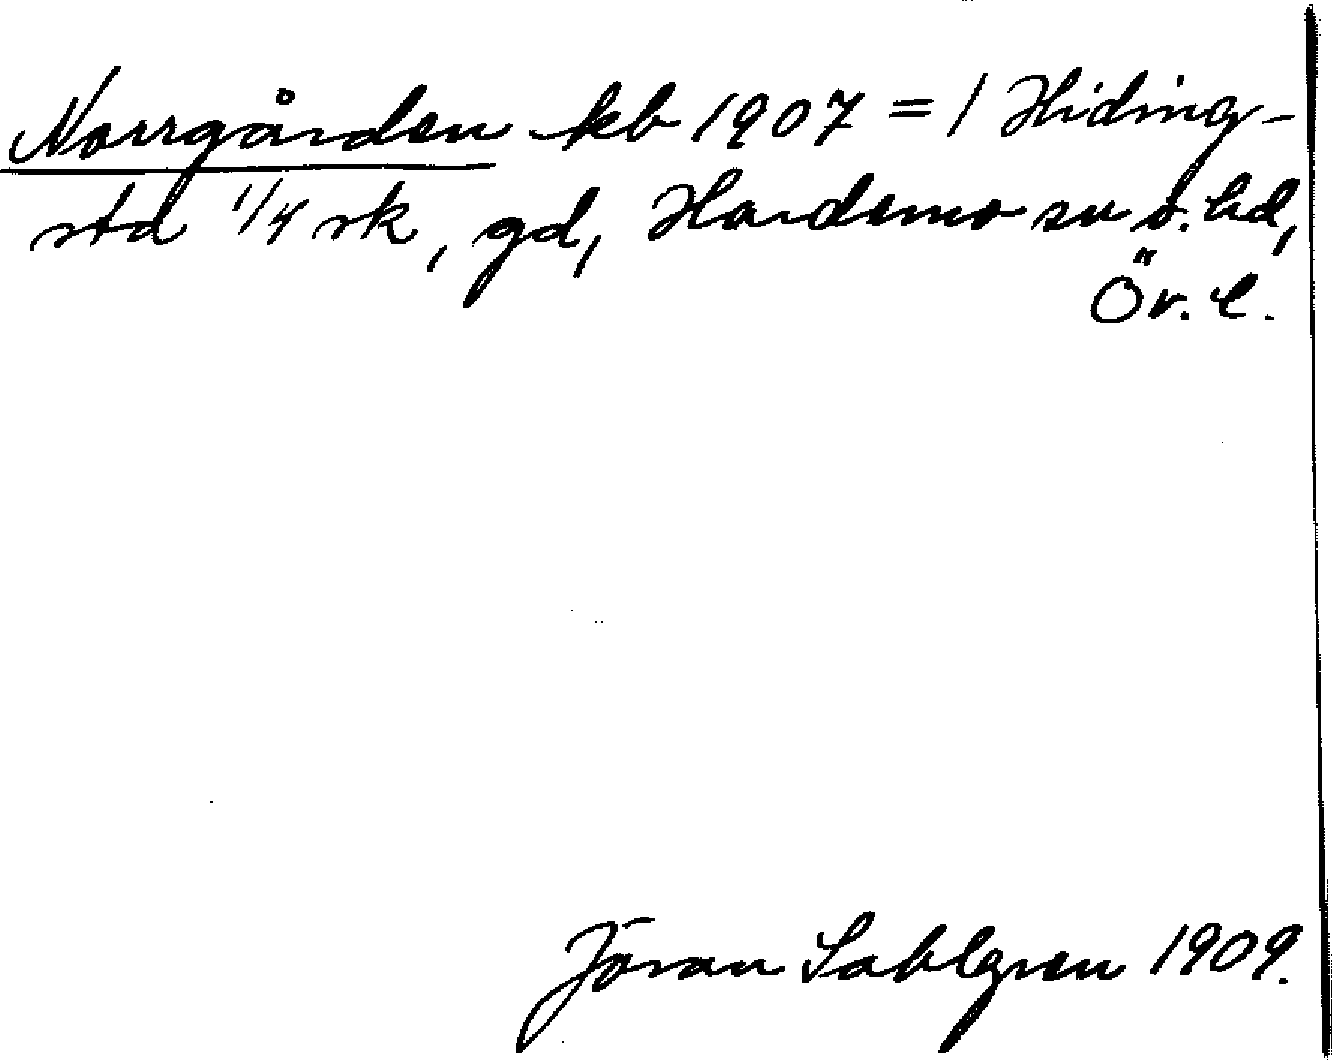 Norrgården kb 1907 = 1 Hiding-
sta 1/4 sk, gd, Hardemo sn o. hd,
Ör. l.
Jöran Sahlgren 1909.